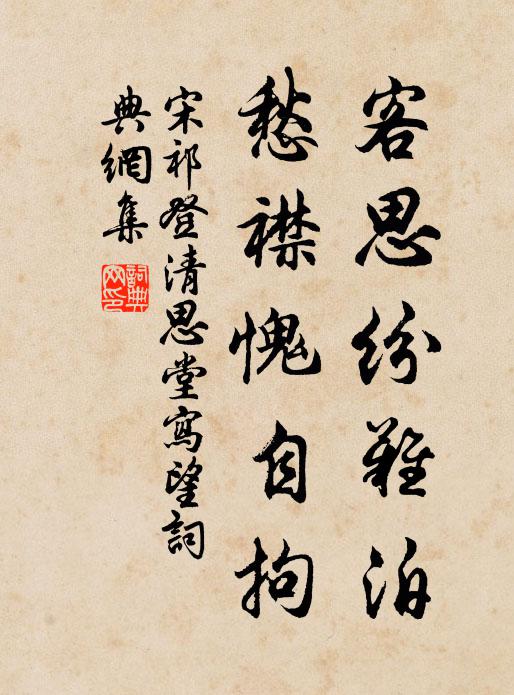 客思紛難泊
愁襟愧自拘
宋祁登清思堂寫望詞
典網集
詞典网印